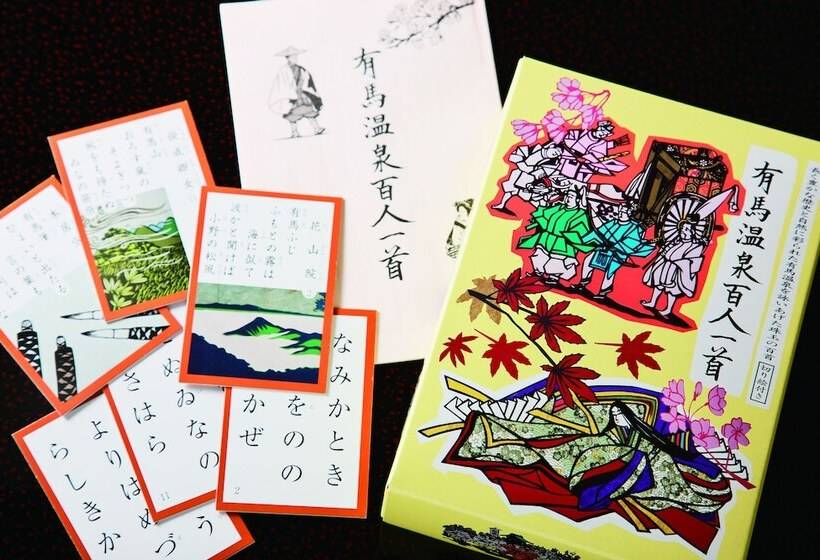 有馬温泉百人一首
長く豊かな歴史と自然に彩られた有馬温泉を詠いあげた珠玉の百首 切り絵付き
有馬温泉百人一首
有馬山
おろす嵐の
花山院
有馬ふじ
ふもとの霧は
海に似て
波かと聞けば
小野の松風
なみかとき
をのの
かぜ
2
ぬゐなの
さはら
11
う
よりはめづ
らしきか